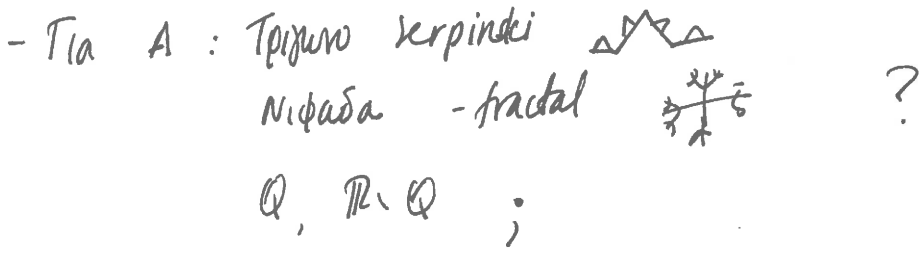 - Για A : Τρίγωνο Serpinski
Νιφάδα - fractal ?
ℚ, ℝ∖ℚ ;